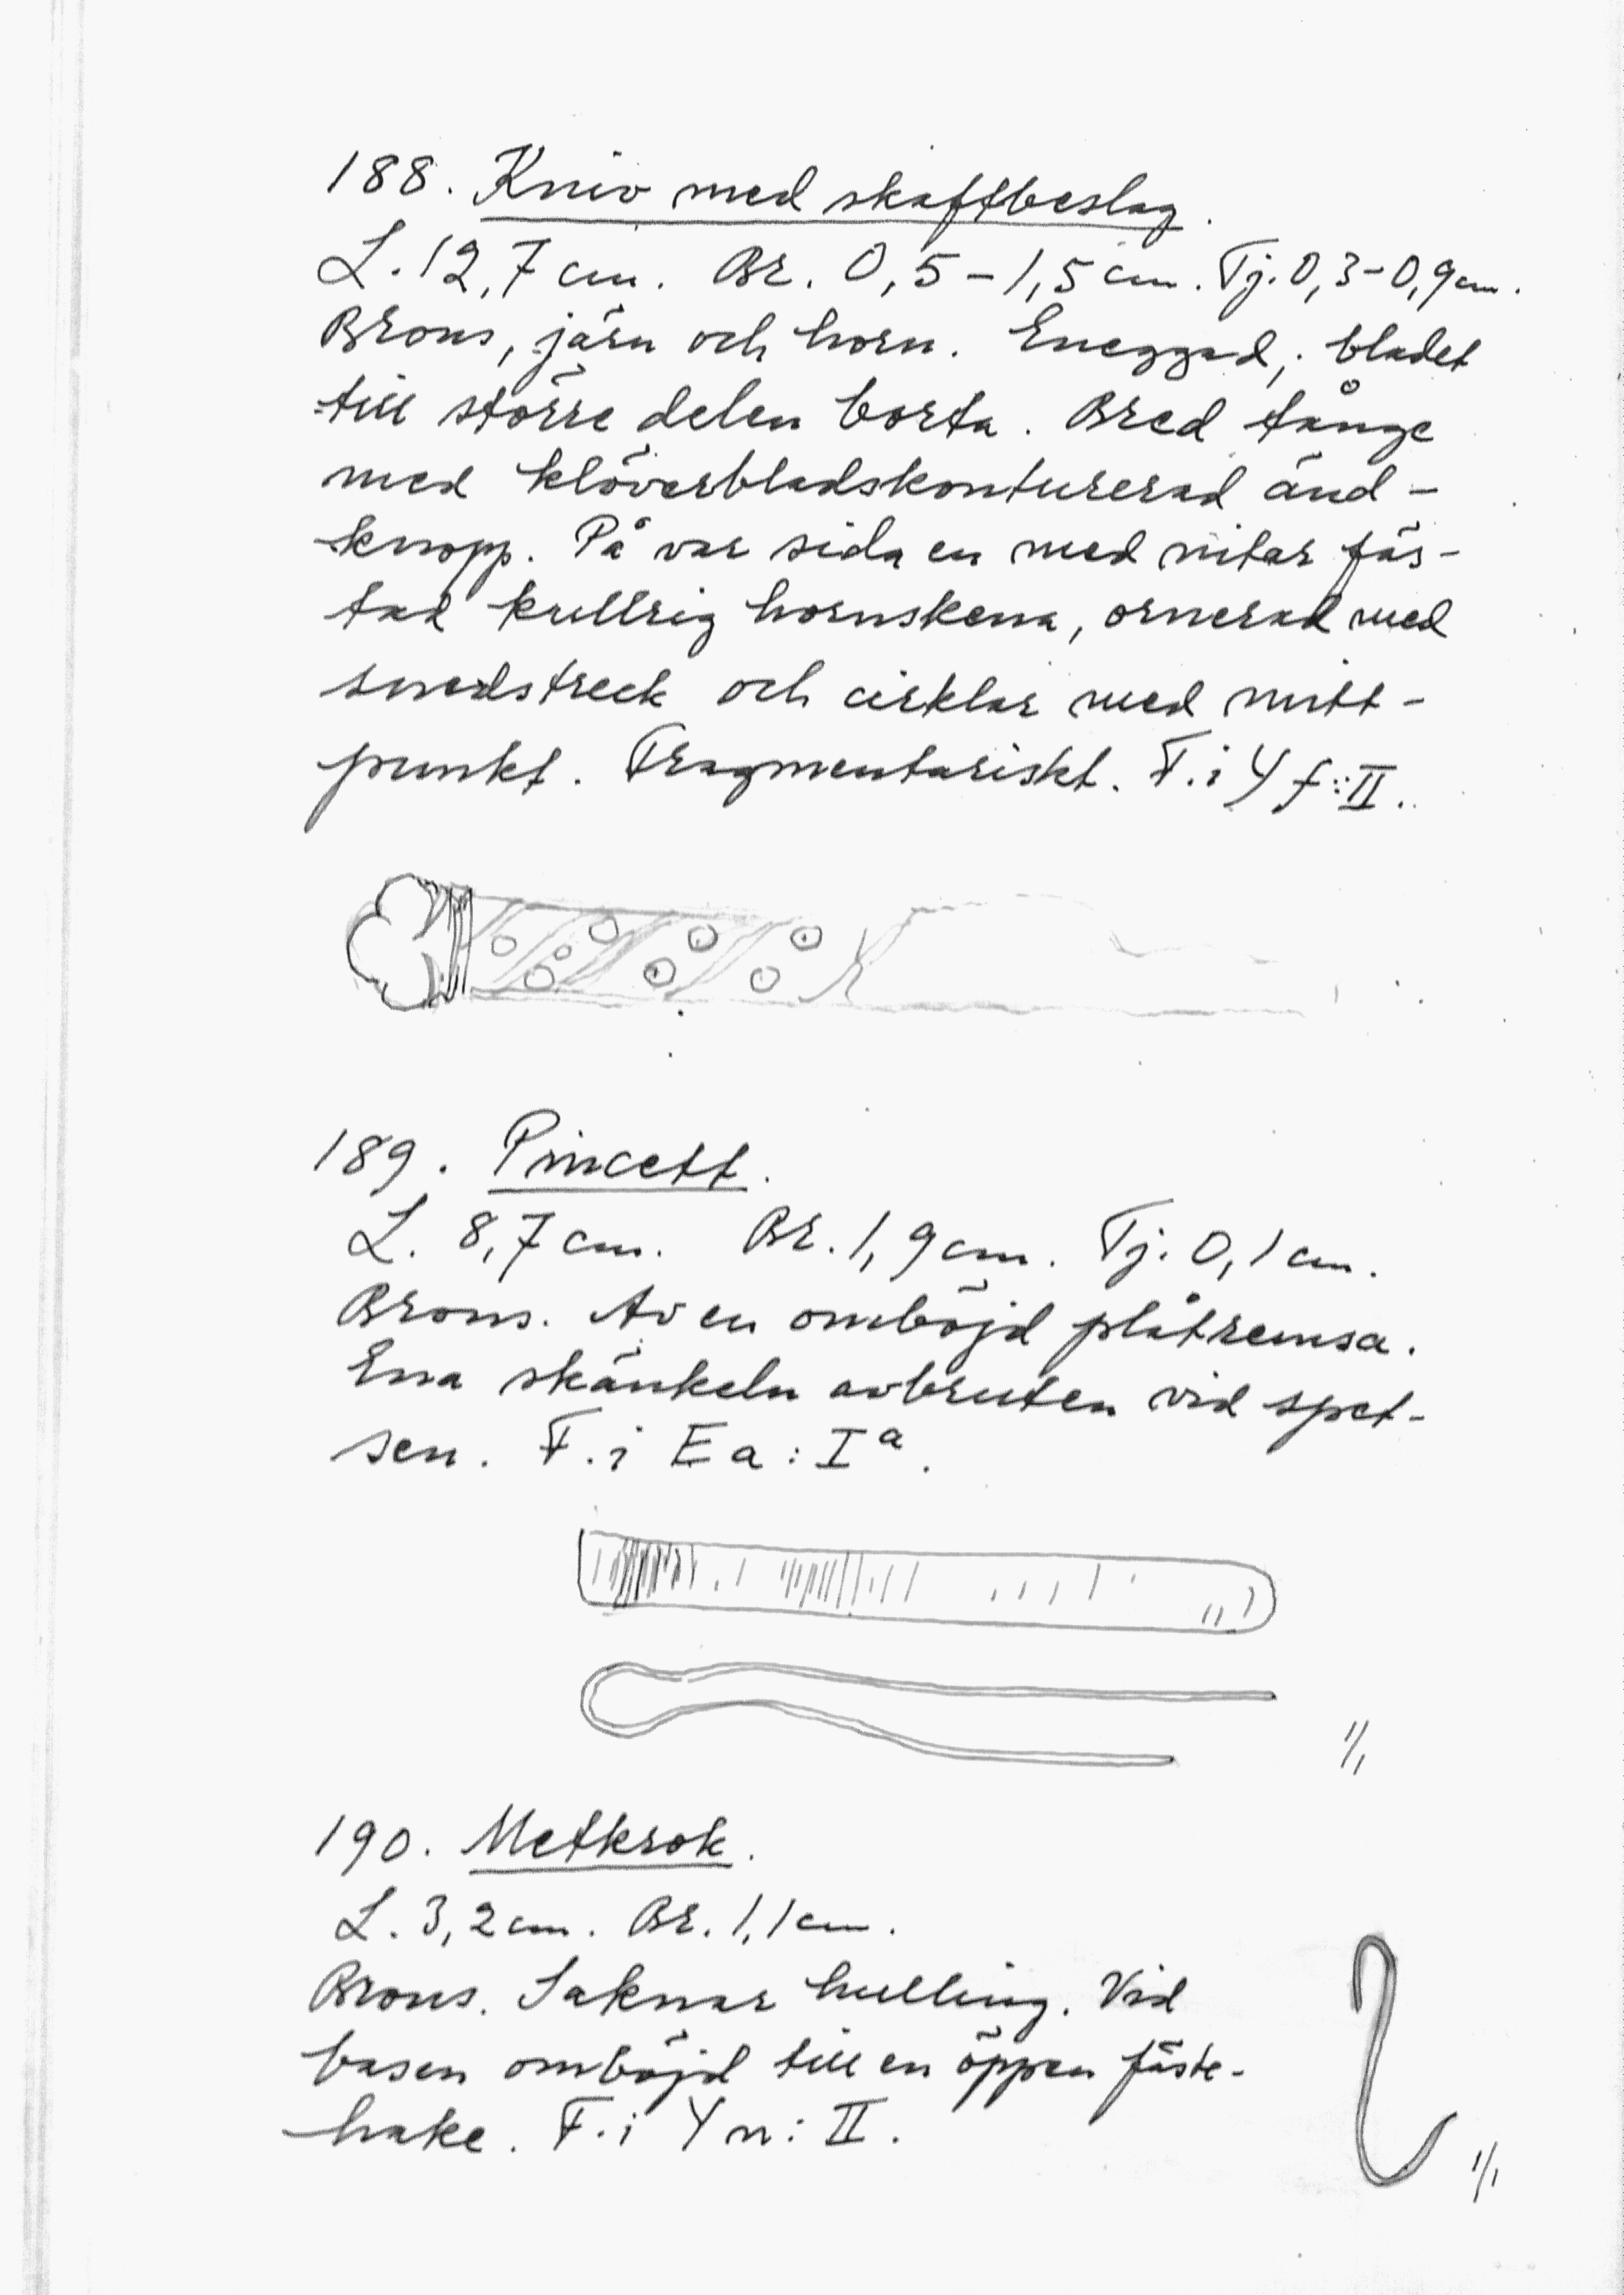 188. Kniv med skaftbeslag.
L. 12,7 cm. Br. 0,5-1,5 cm. Tj. 0,3-0,9 cm.
Brons, järn och horn. Eneggad; bladet
till större delen borta. Bred tånge
med klöverbladskonturerad änd-
knopp. På var sida en med nitar fäs-
tad kullrig hornskena, ornerad med
snedstreck och cirklar med mitt-
punkt. Fragmentariskt. F. i Y f: II.
189. Pincett.
L. 8,7 cm. Br. 1,9 cm. Tj. 0,1 cm.
Brons. Av en omböjd plåtremsa.
Ena skänkeln avbruten vid spet-
sen. F. i E a: I a.
1/1
190. Metkrok.
L. 3,2 cm. Br. 1,1 cm.
Brons. Saknar hulling. Vid
basen omböjd till en öppen fäste-
hake. F. i Y n: II.
1/1